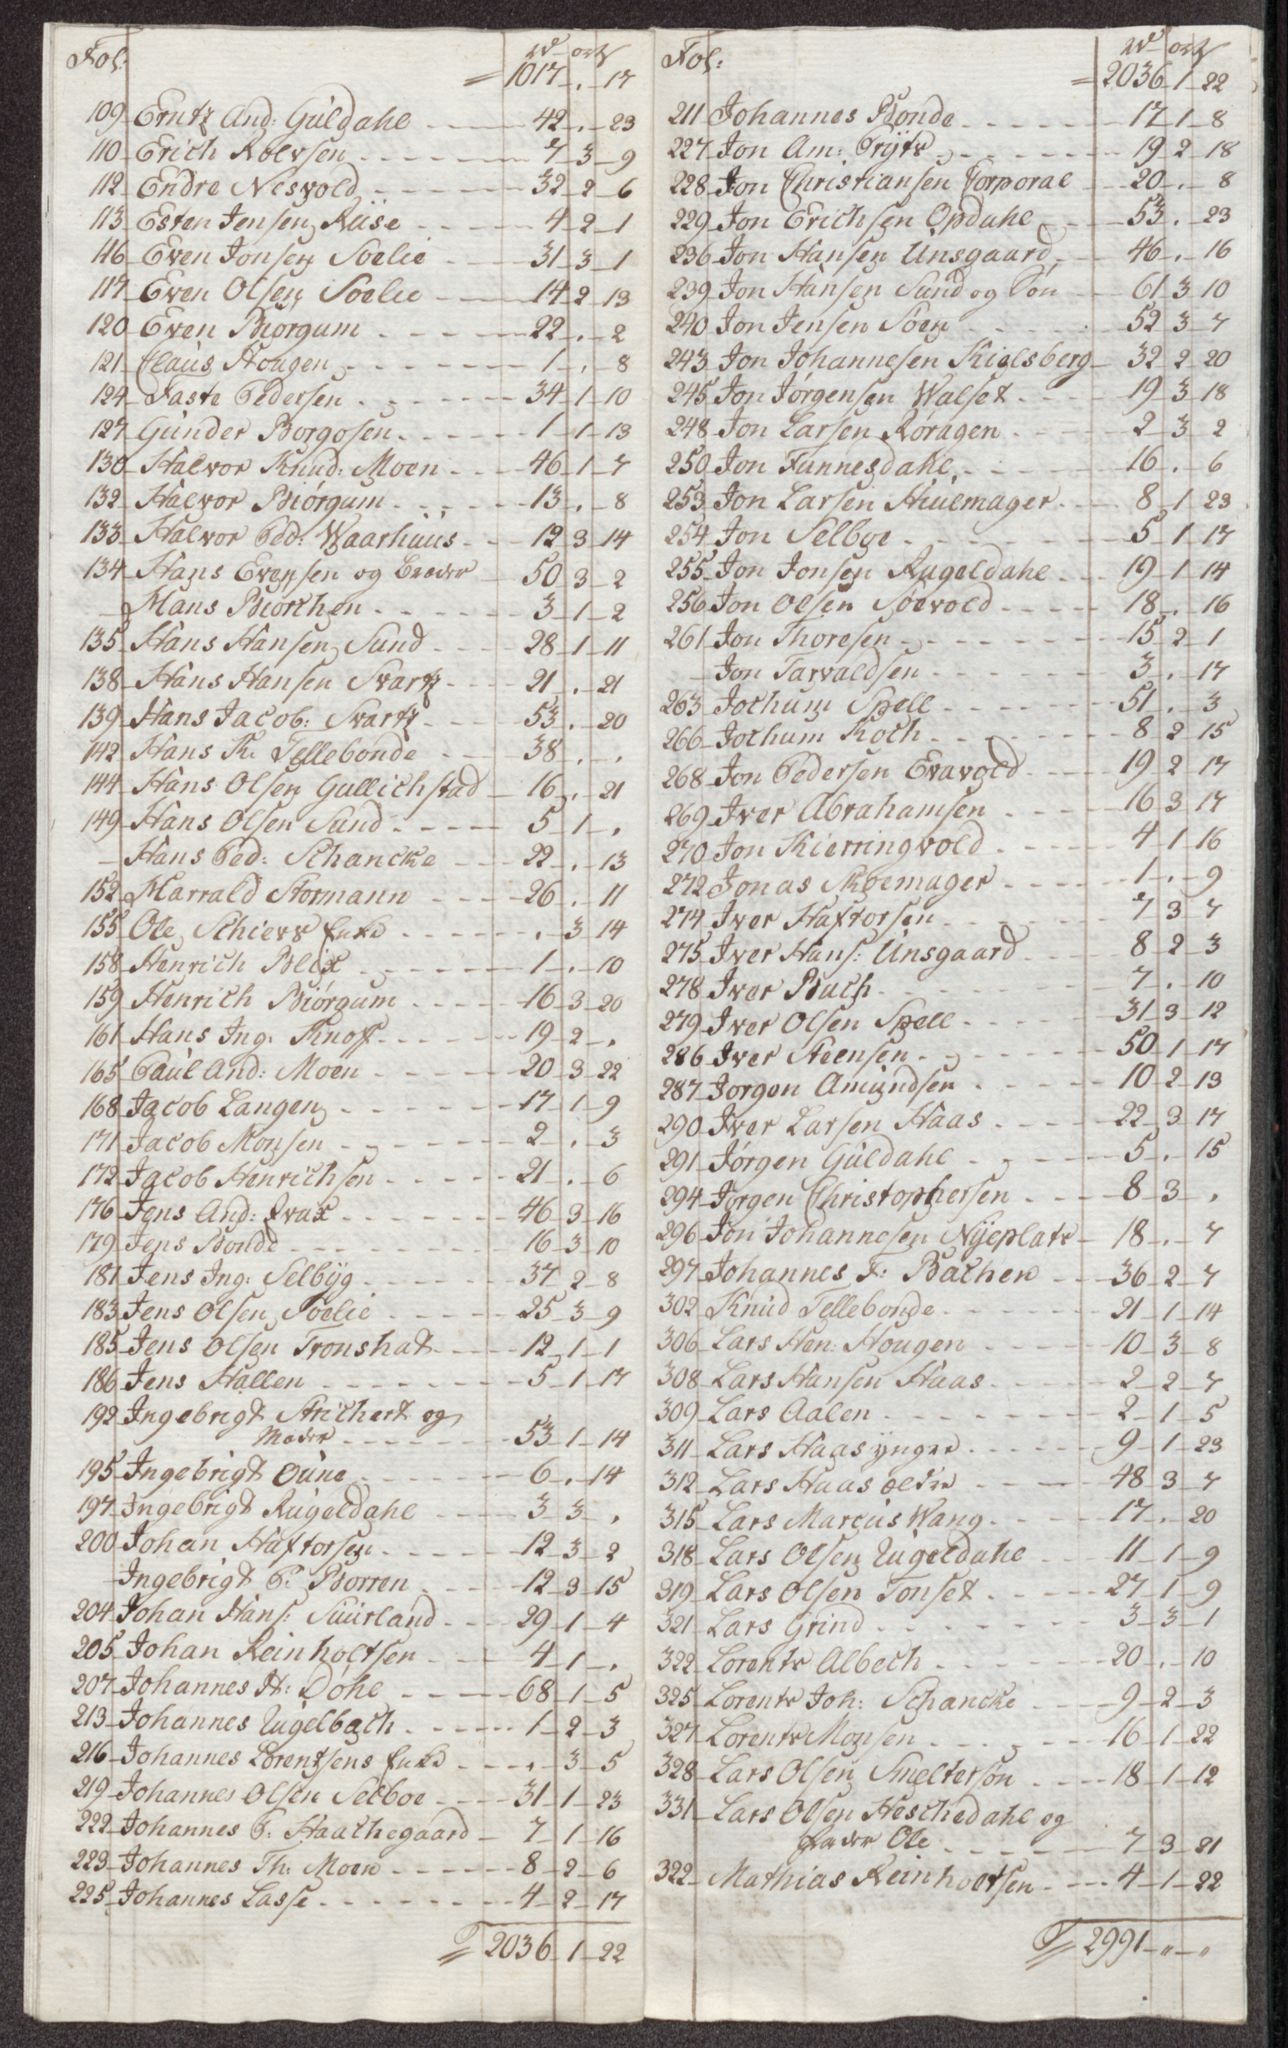 Fol: rd ort ß
1017 . 17
109 Erntz And: Guldahl 42 . 23
110 Erich Rolvsen 7 3 9
112 Endre Nesvold 32 2 6
113 Esten Jensen Riise 4 2 1
116 Even Jonsen Soelie 31 3 1
117 Even Olsen Soelie 14 2 13
120 Even Biorgum 22 . 2
121 Claus Hougen 1 . 8
124 Faste Pedersen 34 1 10
127 Gunder Borgosen 1 1 13
130 Halvor Knud: Moen 46 1 7
132 Halvor Biörgum 13 . 8
133 Halvor Ped: Waarhuus 12 3 14
134 Hans Evensen og Broder 50 3 2
Hans Biorchen 3 1 2
135 Hans Hansen Sund 28 1 11
138 Hans Hansen Svartz 21 . 21
139 Hans Jacob: Svartz 53 . 20
142 Hans K: Tellebonde 38 . .
144 Hans Olsen Gullichstad 16 . 21
149 Hans Olsen Sund 5 1 .
Hans Ped: Schancke 22 . 13
152 Harrald Stormann 26 . 11
155 Ole Schiers Enke . 3 14
158 Henrich Blix 1 . 10
159 Henrich Biörgum 16 3 20
161 Hans Ing: Knoff 19 2 .
165 Paul And: Moen 20 3 22
168 Jacob Langen 17 1 9
171 Jacob Monsen 2 . 3
172 Jacob Henrichsen 21 . 6
176 Jens And: Qvax 46 3 16
179 Jens Bonde 16 3 10
181 Jens Ing: Selbÿg 37 2 8
183 Jens Olsen Soelie 25 3 9
185 Jens Olsen Tronshat 12 1 1
186 Jens Hallen 5 1 17
192 Ingebrigt Strichert og
Moder 53 1 14
195 Ingebrigt Oune 6 . 14
197 Ingebrigt Rugeldahl 3 3 .
200 Johan Haftorsen 12 3 2
Ingebrigt P: Borren 12 3 15
204 Johan Hans: Suurland 29 1 4
205 Johan Reinholtsen 4 1 .
207 Johannes H: Döhl 68 1 5
213 Johannes Rugelbach 1 2 3
216 Johannes Lorentsens Enke . 3 5
219 Johannes Olsen Selboe 31 1 23
222 Johannes P: Haachegaard 7 1 16
223 Johannes Th: Moen 8 2 6
225 Johannes Lasse 4 2 17
2036 1 22
Fol: rd ort ß
2036 1 22
211 Johannes Bonde 17 1 8
227 Jon Am: Prÿtz 19 2 18
228 Jon Christiansen Corporal 20 . 8
229 Jon Erichsen Opdahl 53 . 23
236 Jon Hansen Unsgaard 46 . 16
239 Jon Hansen Sund og Sön 61 3 10
240 Jon Jensen Söen 52 3 7
243 Jon Johannesen Kielsberg 32 2 20
245 Jon Jörgensen Walset 19 3 18
248 Jon Larsen Röragen 2 3 2
250 Jon Funnesdahl 16 . 6
253 Jon Larsen Hiulmager 8 1 23
254 Jon Selboe 5 1 17
255 Jon Jonsen Rugeldahl 19 1 14
256 Jon Olsen Soevold 18 . 16
261 Jon Thoresen 15 2 1
Jon Tarvaldsen 3 . 17
263 Jochum Spell 51 . 3
266 Jochum Koch 8 2 15
268 Jon Pedersen Evavold 19 2 17
269 Iver Abrahamsen 16 3 17
270 Jon Kierringvold 4 1 16
272 Jonas Skoemager 1 . 9
274 Iver Haftorsen 7 3 7
275 Iver Hans: Unsgaard 8 2 3
278 Iver Buch 7 . 10
279 Iver Olsen Spell 31 3 12
286 Iver Steensen 50 1 17
287 Jorgen Amundsen 10 2 13
290 Iver Larsen Haas 22 3 17
291 Jörgen Guldahl 5 . 15
294 Jorgen Christophersen 8 3 .
296 Jon Johannesen Nÿeplats 18 . 7
297 Johannes F: Bachen 36 2 7
302 Knud Tellebonde 21 1 14
306 Lars Hen: Hougen 10 3 8
308 Lars Hansen Haas 2 2 7
309 Lars Aalen 2 1 5
311 Lars Haas ÿnger 9 1 23
312 Lars Haas Oeldre 48 3 7
315 Lars Marcus Wang 17 . 20
318 Lars Olsen Rugeldahl 11 1 9
319 Lars Olsen Tonset 27 1 9
321 Lars Grind 3 3 1
322 Lorents Albech 20 . 10
325 Lorents Joh: Schancke 9 2 3
327 Lorents Monsen 16 1 22
328 Lars Olsen Smeltersön 18 1 12
331 Lars Olsen Heschedahl og
Fader Ole 7 3 21
322 Mathias Reinholtsen 4 1 22
2991 " "